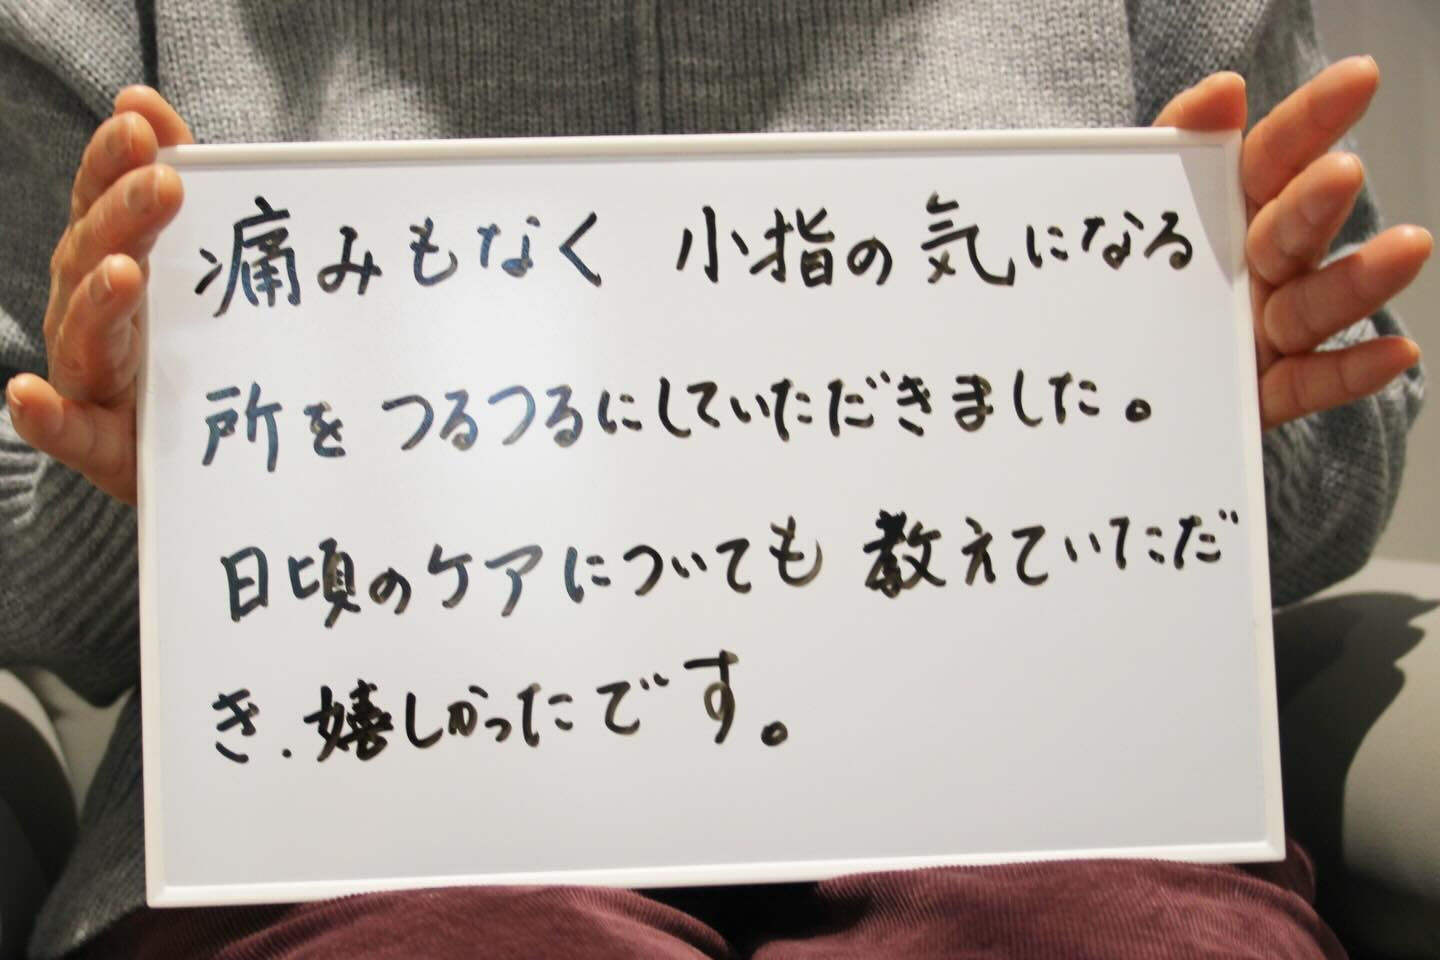 痛みもなく 小指の気になる
所をつるつるにしていただきました。
日頃のケアについても教えていただ
き、嬉しかったです。